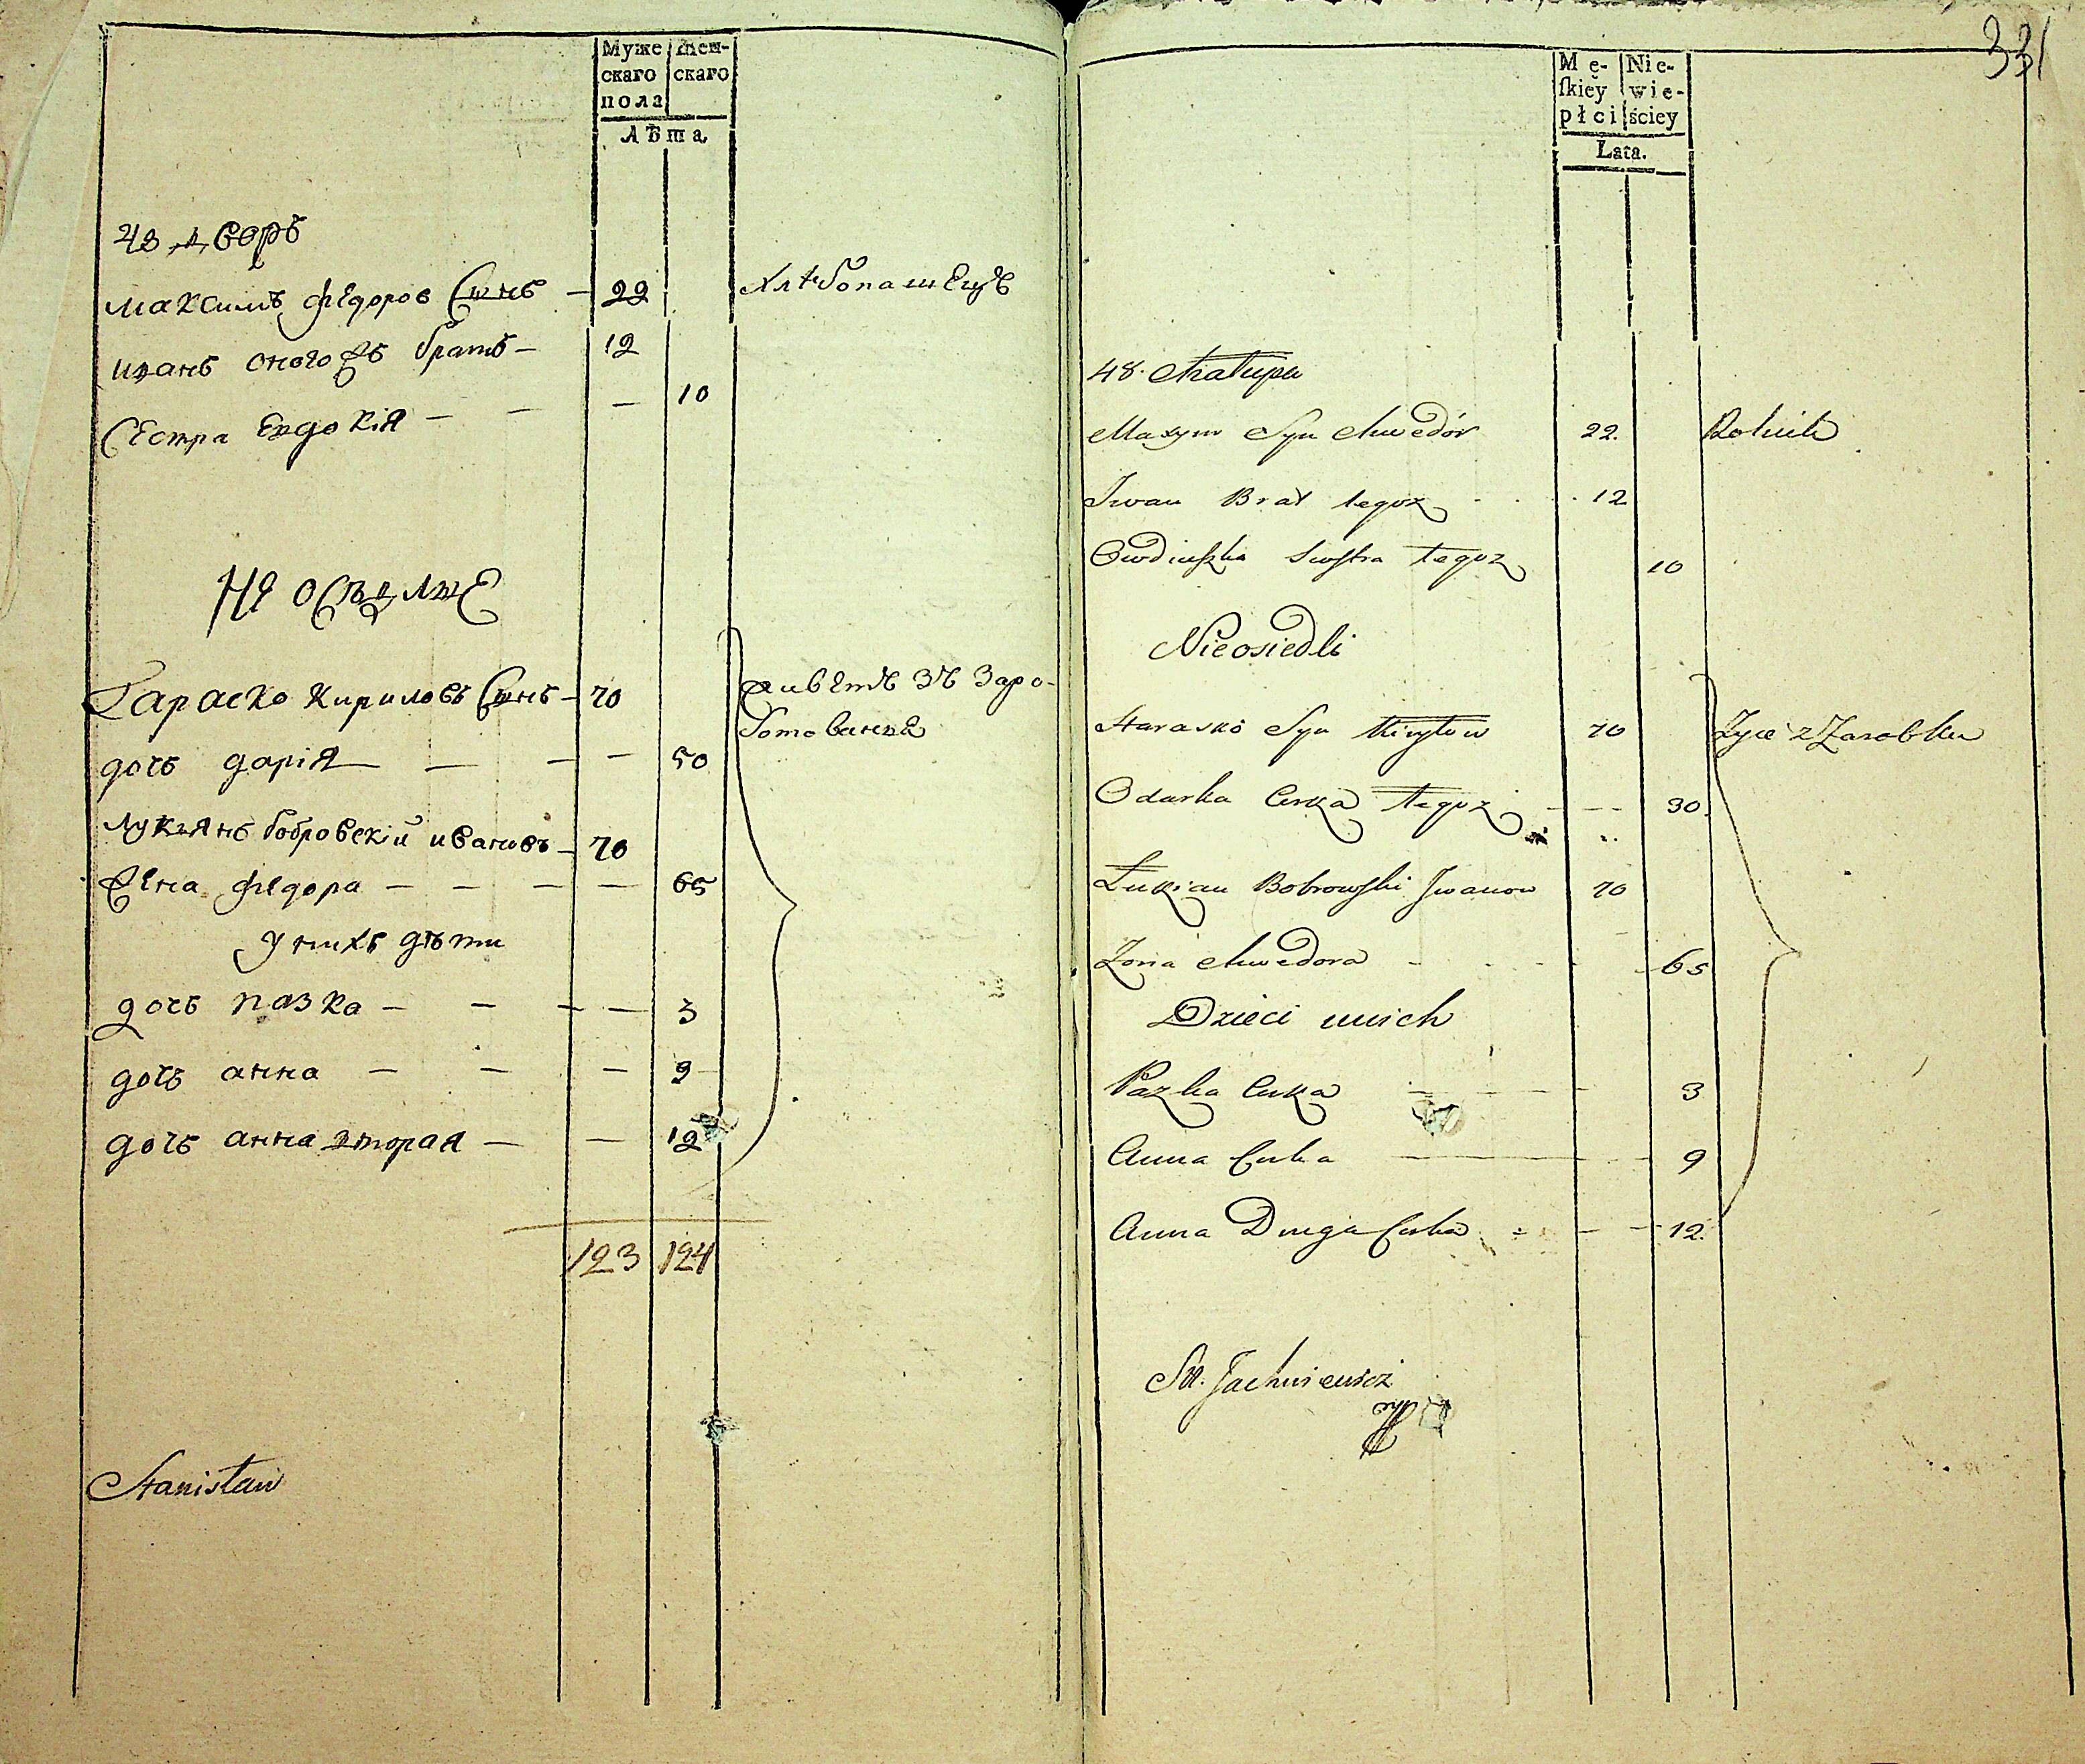 Муже
скаго
пола
Жен-
скаго
Лѣта
48 дворъ
максимъ федоров Сынъ — 22 хлѣбопашецъ
иванъ оного жъ братъ — 12
Сестра Евдокія — — — 10
Не осѣдлые
Гараско кириловъ Сынъ — 70 живетъ зъ заро-
ботовання
дочь дарія — — — — 50
лукьянъ бобровскій ивановъ — 70
жена федора — — — — 65
у нихъ дѣти
дочь пазка — — — — 3
дочь анна — — — 9
дочь анна вторая — — 12
123 124
Stanisław
331
Mę-
ſkiey
płci
Nie-
wie-
ściey
Lata.
48. Chałupa
Maxym Syn Chwedór 22. Rolnik
Iwan Brat tegoż 12
Owdiuszka Siostra tegoż 10
Nieosiedli
Haraskó Syn Kiryłow 70 Żyie z Zarobku
Odarka Curka tegoż — — 30.
Łukian Bobrowski Jwanow 70
Żona Chwedora 65
Dzieci unich
Pazka Curka 3
Anna Curka 9
Anna Druga Curka 12.
St. Jachniewicz